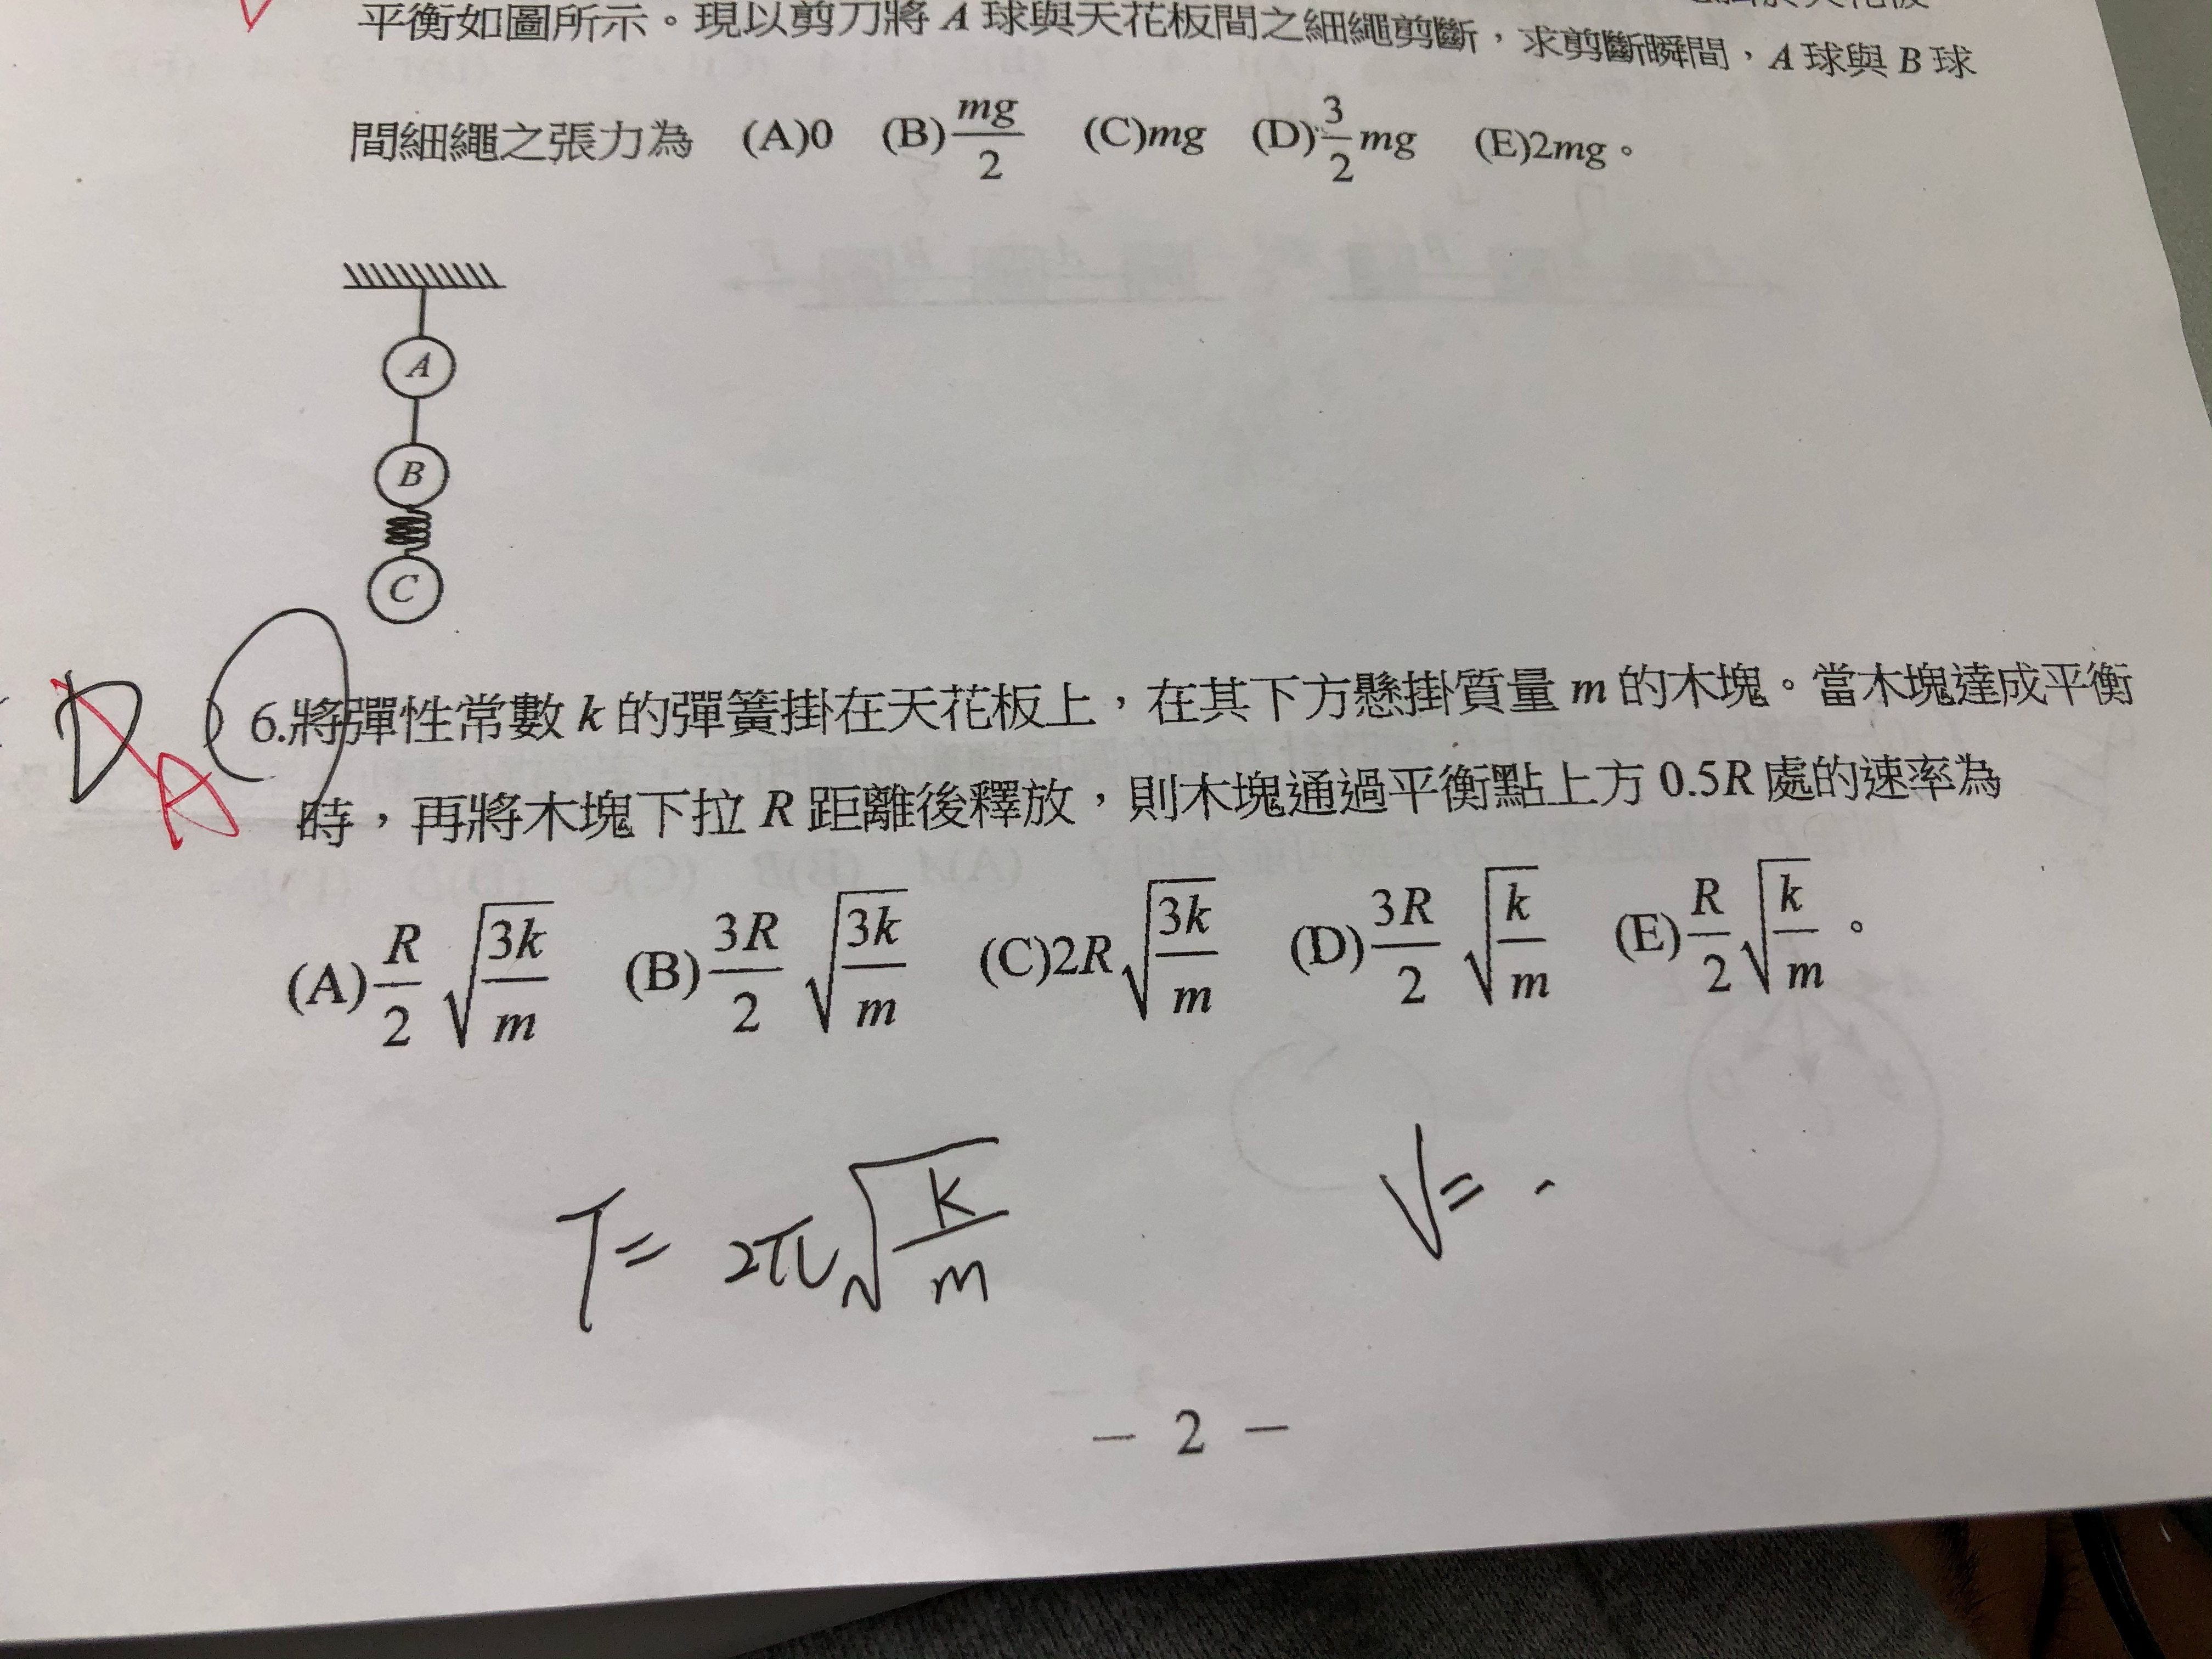 平衡如圖所示。現以剪刀將 A 球與天花板間之細繩剪斷，求剪斷瞬間，A 球與 B 球
間細繩之張力為 (A)0 (B)mg/2 (C)mg (D)3/2 mg (E)2mg。
A
B
C
D
A
) 6.將彈性常數 k 的彈簧掛在天花板上，在其下方懸掛質量 m 的木塊。當木塊達成平衡
時，再將木塊下拉 R 距離後釋放，則木塊通過平衡點上方 0.5R 處的速率為
(A)R/2 √(3k/m) (B)3R/2 √(3k/m) (C)2R√(3k/m) (D)3R/2 √(k/m) (E)R/2 √(k/m)。
T= 2π√(k/m) V=
－ 2 －